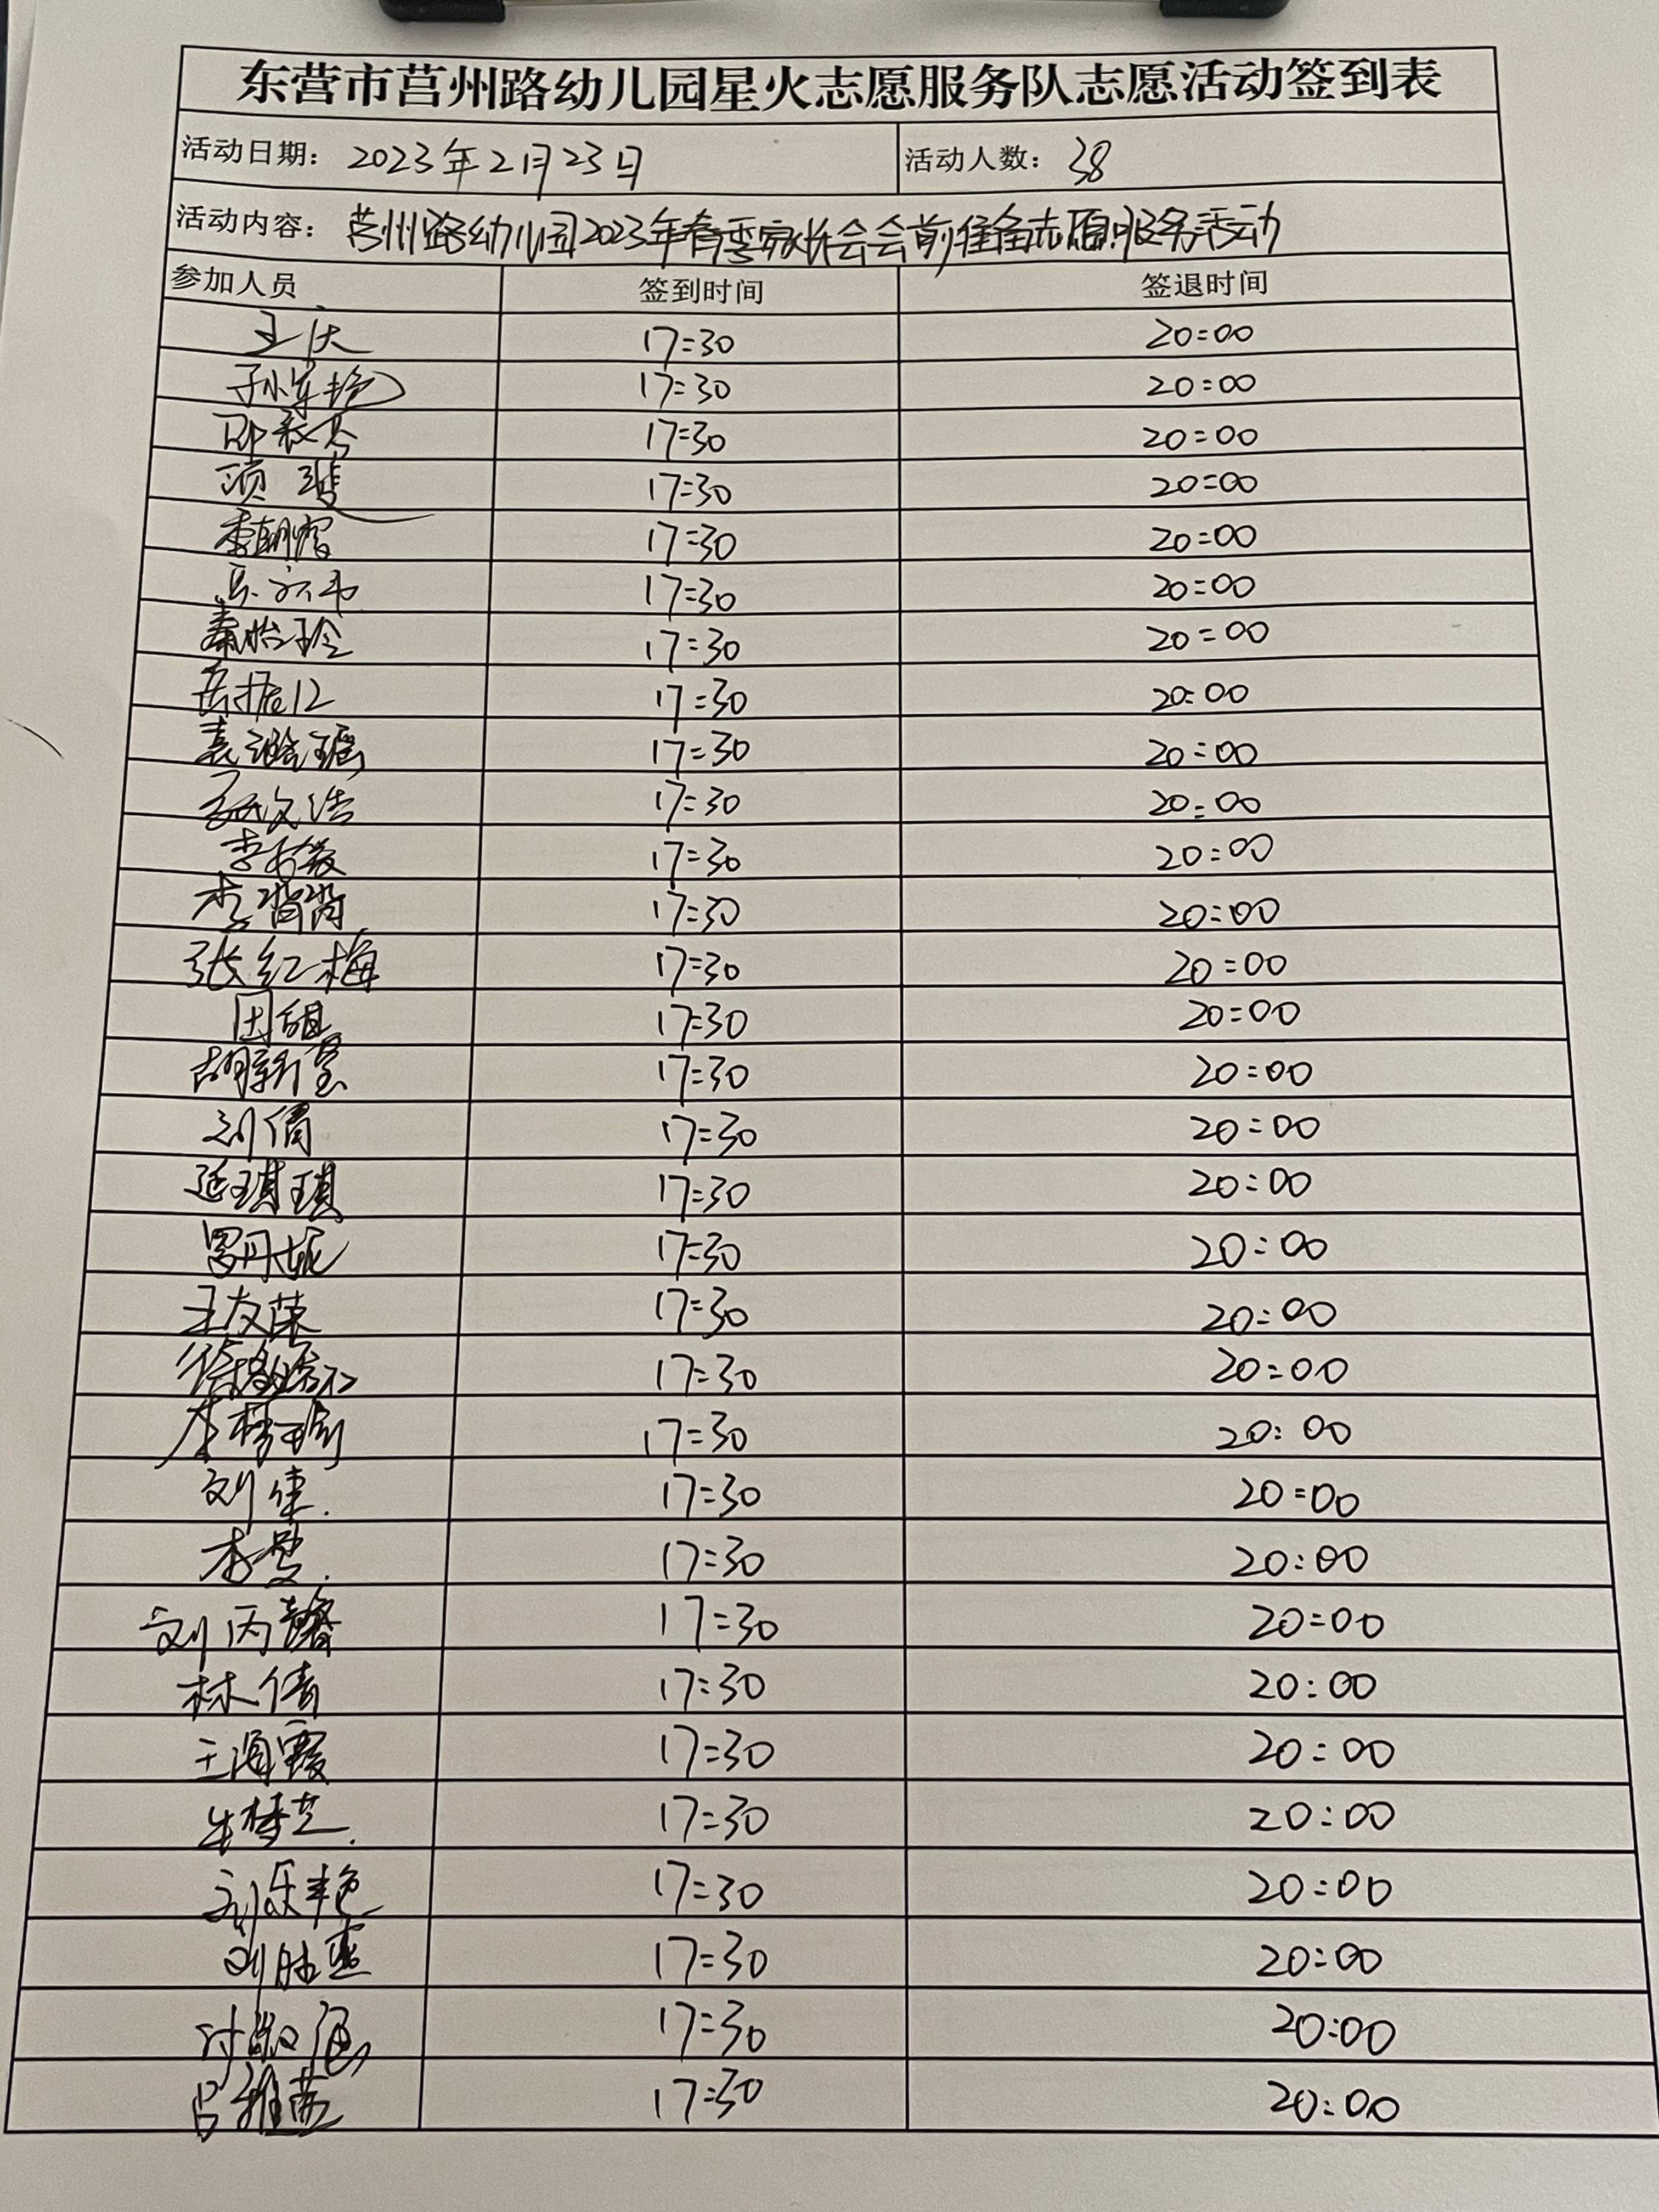 东营市莒州路幼儿园星火志愿服务队志愿活动签到表
活动日期：2023年2月23日 活动人数：38
活动内容：莒州路幼儿园2023年春季家长会会前准备志愿服务活动
参加人员 签到时间 签退时间
17:30 20:00
孙军艳 17:30 20:00
17:30 20:00
17:30 20:00
李朝霞 17:30 20:00
17:30 20:00
秦怡玲 17:30 20:00
17:30 20:00
袁璐瑶 17:30 20:00
17:30 20:00
17:30 20:00
李肖肖 17:30 20:00
张红梅 17:30 20:00
17:30 20:00
胡新莹 17:30 20:00
刘倩 17:30 20:00
延琪琪 17:30 20:00
罗丹妮 17:30 20:00
王友荣 17:30 20:00
17:30 20:00
17:30 20:00
刘佳 17:30 20:00
李曼 17:30 20:00
刘丙馨 17:30 20:00
林倩 17:30 20:00
王海霞 17:30 20:00
牛梦芝 17:30 20:00
刘乐艳 17:30 20:00
17:30 20:00
17:30 20:00
吕雅茹 17:30 20:00